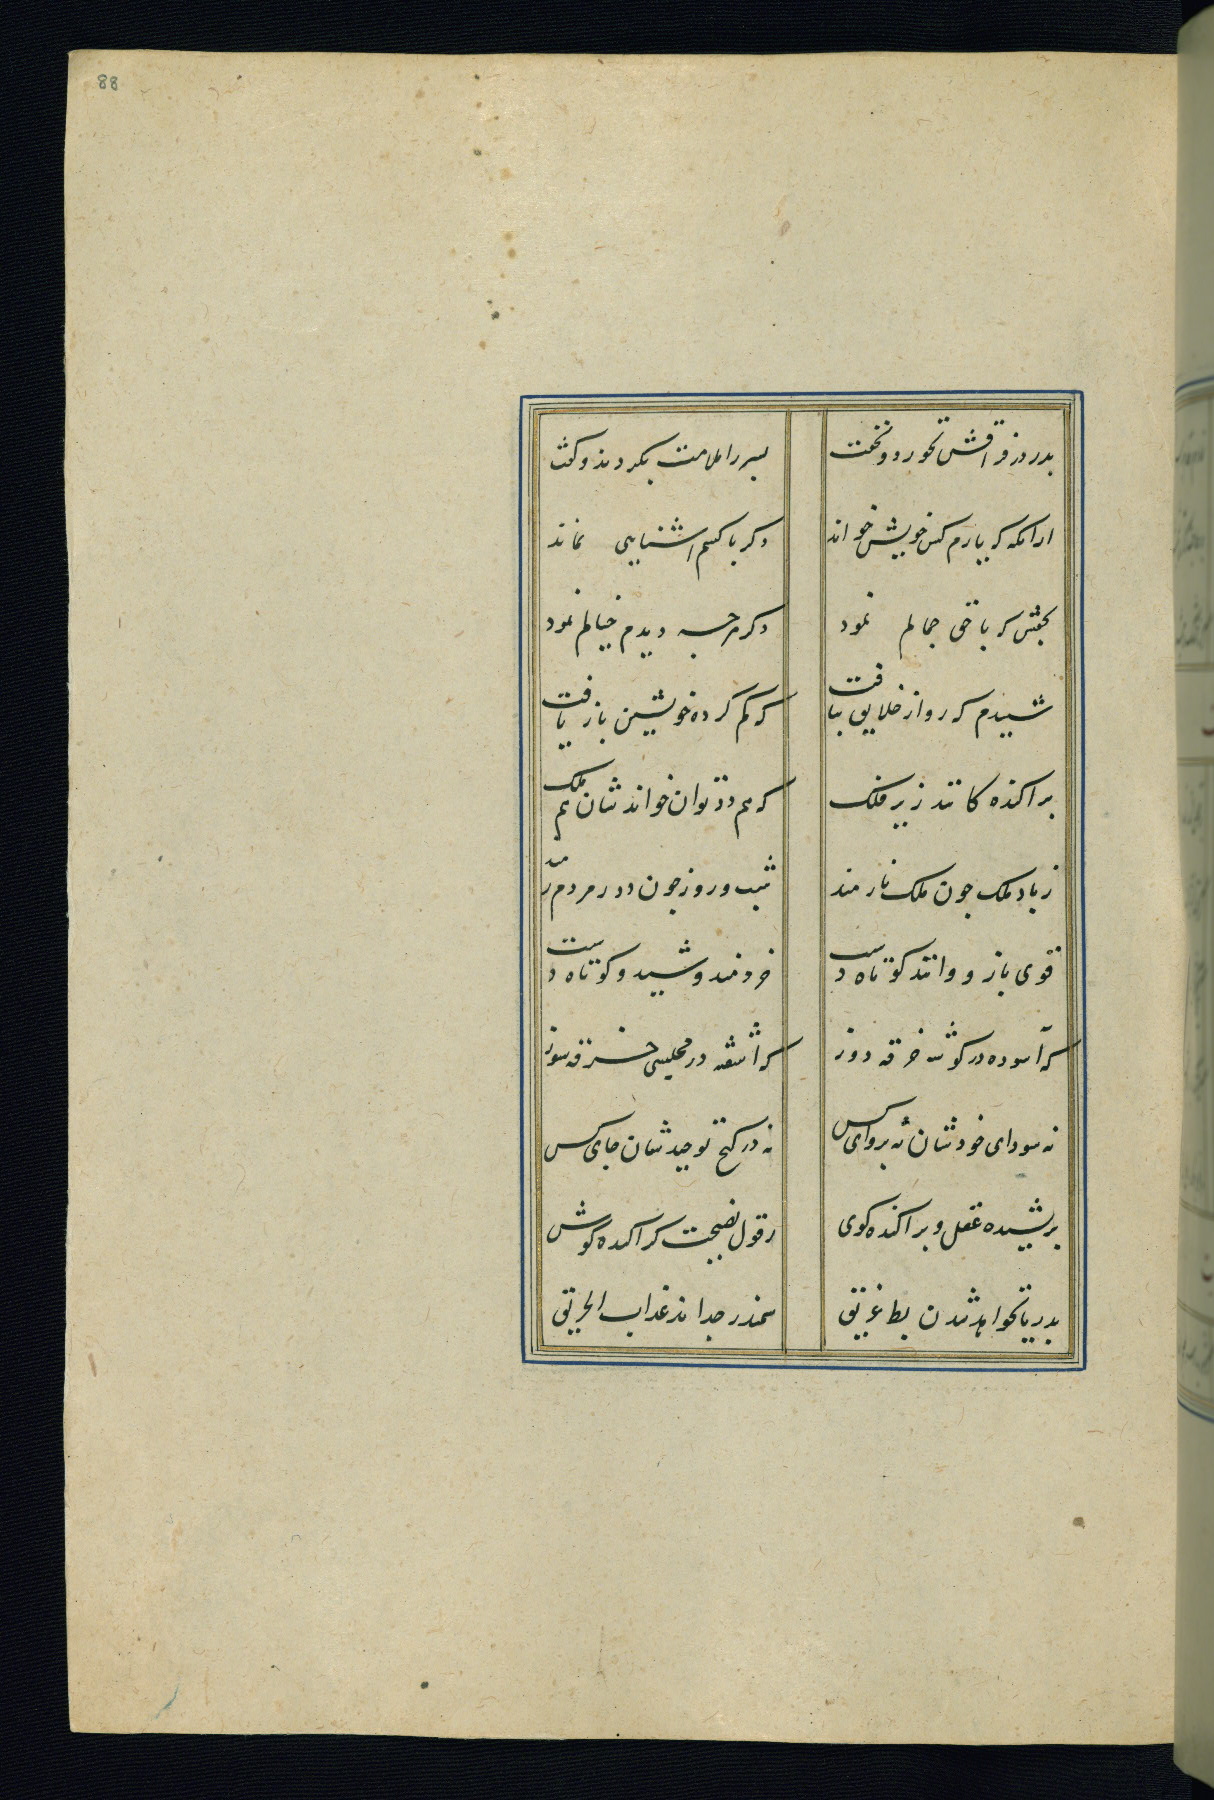 88
بدر در فراقش نخورد و نخفت بسر را ملامت بکردند و کفت
ازانکه که یارم کس خویش خواند دکر با کسم اشنایی نماند
بحقش که تا حق جمالم نمود دکر هرجه دیدم خیالم نمود
شنیدم که رو از خلایق بتافت که کم کرده خویشتن باز یافت
براکنده کانند زیر فلک که هم دد توان خواندشان هم ملک
ز یاد ملک جون ملک نارمند شب و روز جون دد ز مردم رمند
قوی بازوانند کوتاه دست خردمند و شیدا و کوتاه دست
که آسوده در کوشه خرقه دوز که آشفته در مجلسی خرقه سوز
نه سودای خودشان نه بروای کس نه در کنج توحیدشان جای کس
بریشیده عقل و براکنده کوی ز قول نصیحت کر آکنده کوش
بدریا نخواهد شدن بط غریق سمندر جه داند عذاب الحریق